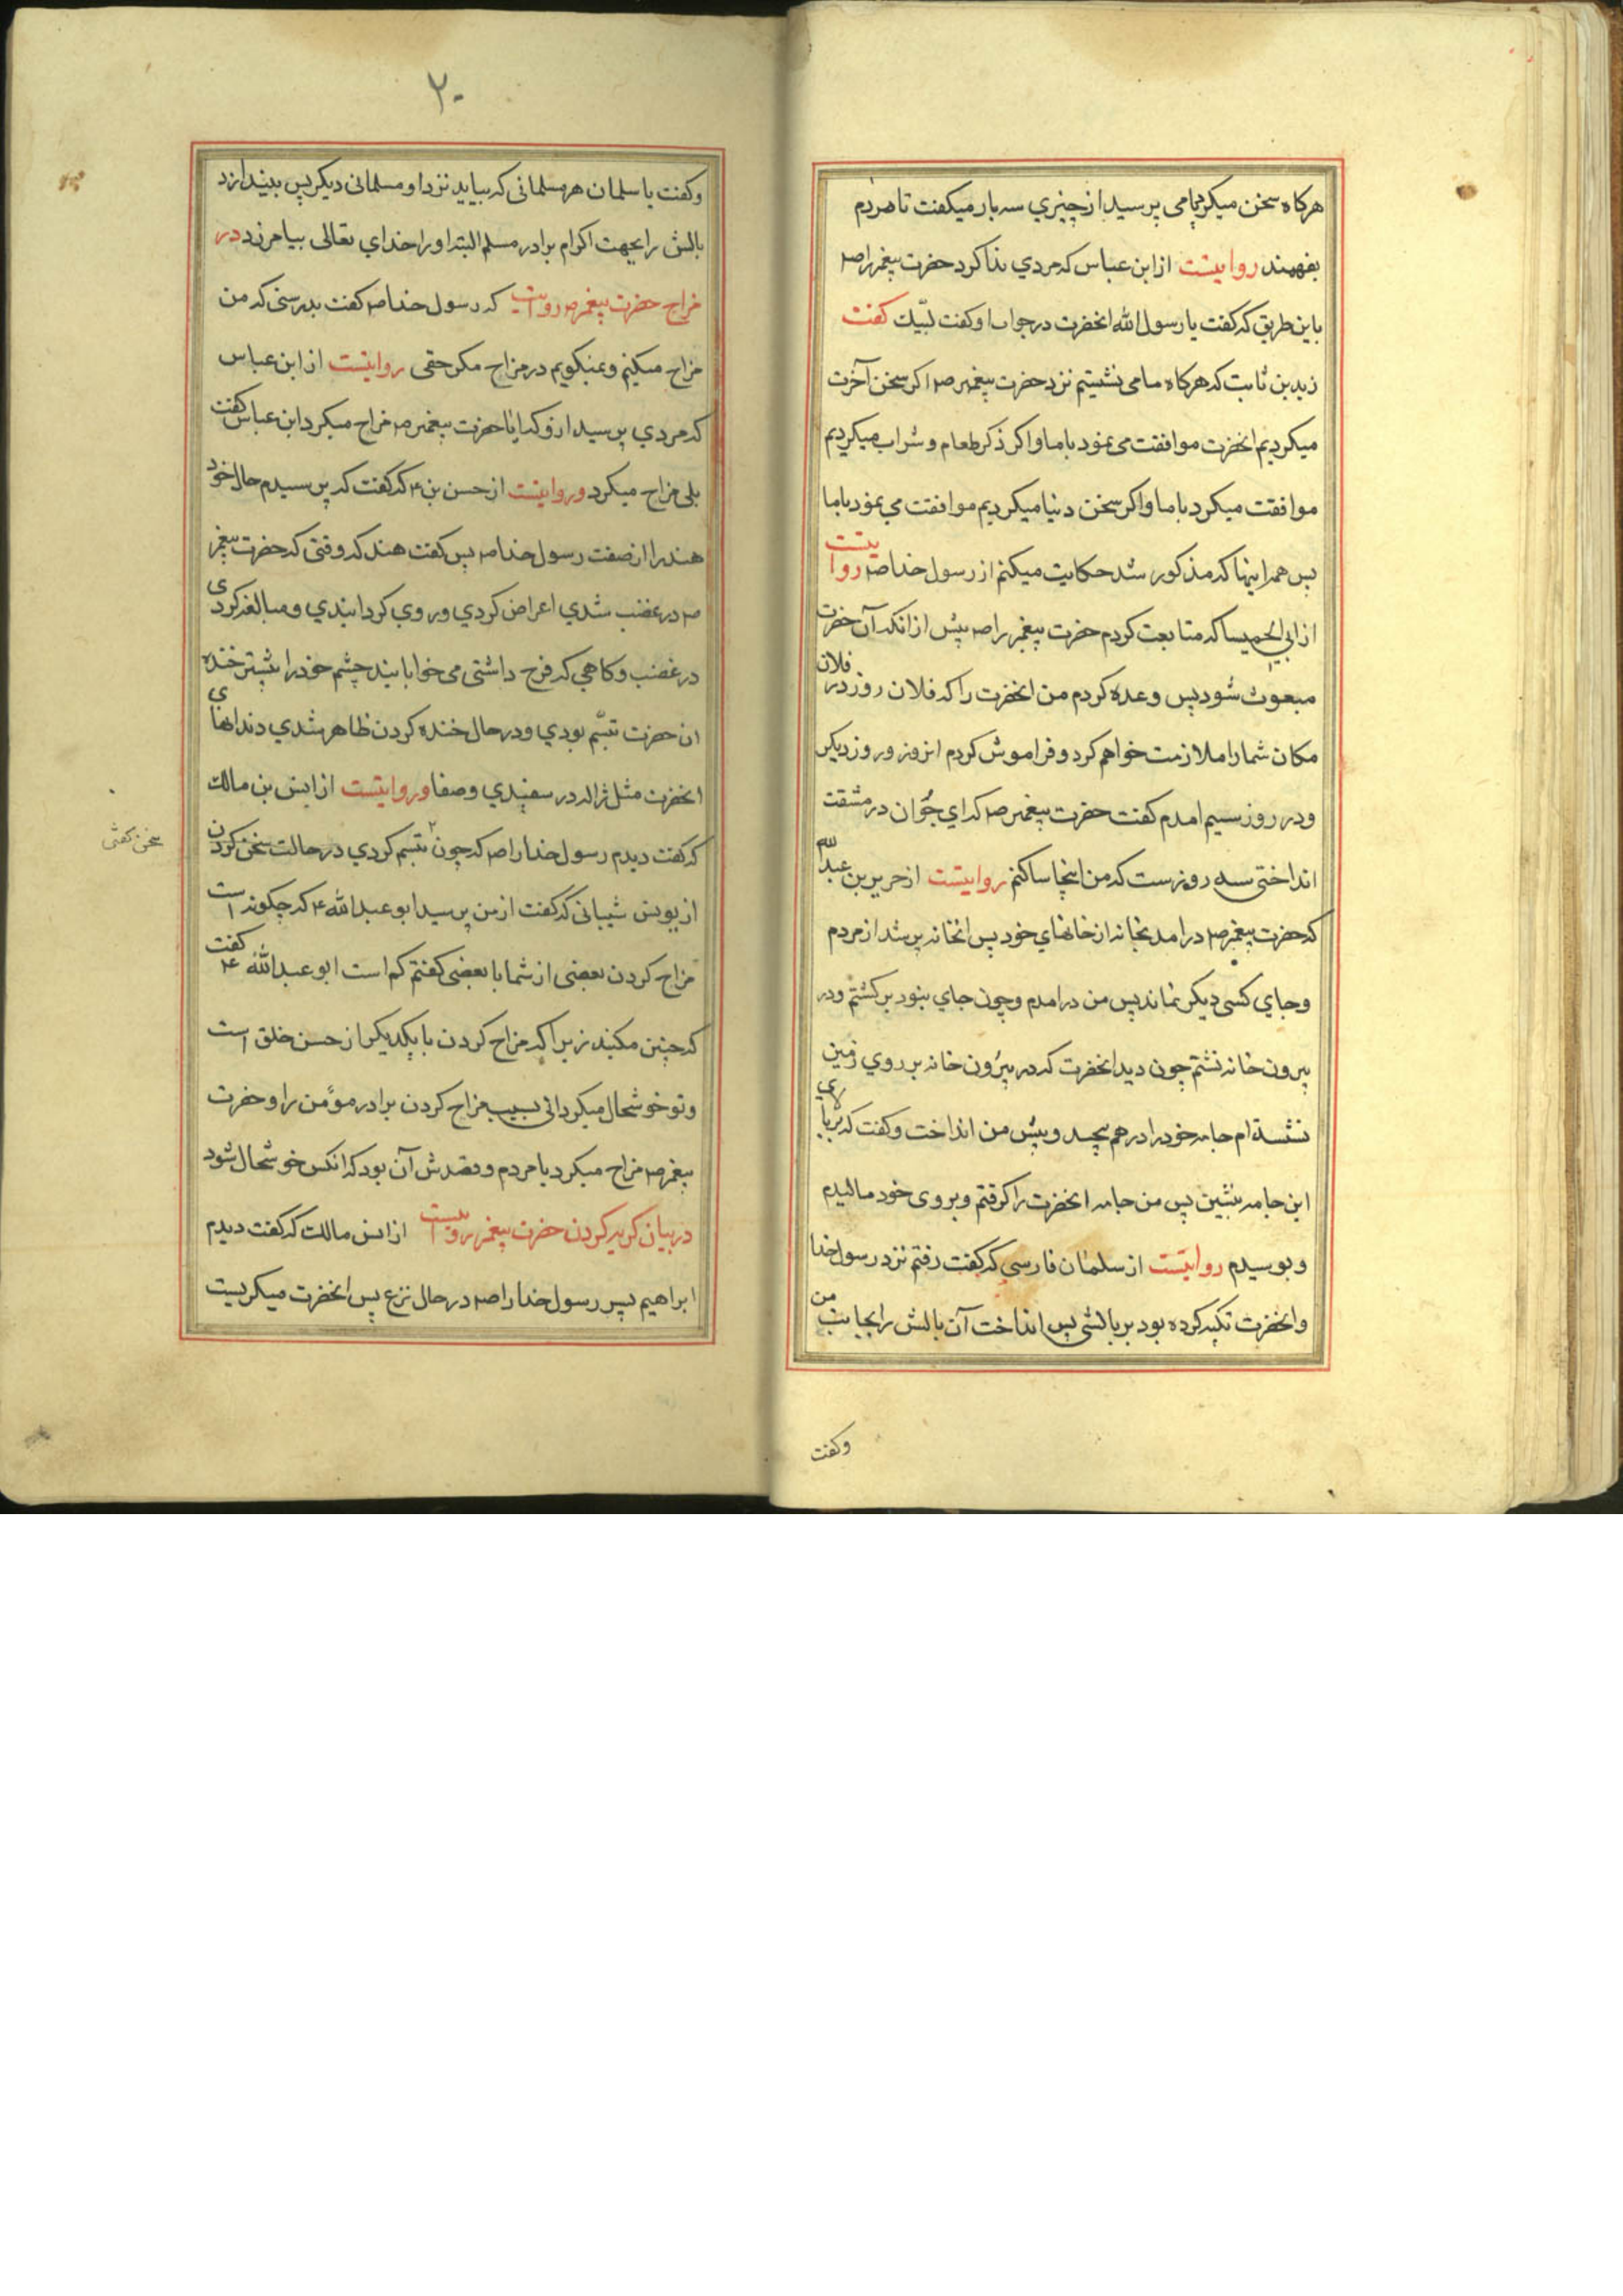 هرکاه سخن میکرد یا می پرسید از چیزي سه بار میکفت تا مردم
بفهمند روایتست از ابن عباس که مردي ندا کرد حضرت پیغمبر را صم
باین طریق که کفت یا رسول الله انحضرت در جواب او کفت لبّیك کفت
زید بن ثابت که هرکاه ما می نشستیم نزد حضرت پیغمبر صم اکر سخن آخرت
میکردیم انحضرت موافقت می نمود با ما و اکر ذکر طعام و شراب میکردیم
موافقت میکرد با ما و اکر سخن دنیا میکردیم موافقت می نمود با ما
پس همه اینها که مذکور شد حکایت میکنم از رسول خدا صم روایتست
از ابی که متابعت کردم حضرت پیغمبر را صم پیش از انکه آن حضرت
مبعوث شود پس وعده کردم من انحضرت را که فلان روز در فلان
مکان شما را ملازمت خواهم کرد و فراموش کردم انروز و روز دیکر
و در روز سیم امدم کفت حضرت پیغمبر صم که اي جُوان در مشقت
انداختی سه روزست که من اینجا ساکنم روایتست از جریر بن عبد الله
که حضرت پیغمبر صم در امد بخانه از خانهاي خود پس انخانه پر شد از مردم
و جاي کسی دیکر نماند پس من در امدم و چون جاي نبود برکشتم و در
بیرون خانه نشستم چون دید انحضرت که در بیرون خانه بر روي زمین
نشسته ام جامه خود را در هم پیچید و پیش من انداخت و کفت که بر بالاي
این جامه بنشین پس من جامه انحضرت را کرفتم و بروی خود مالیدم
و بوسیدم روایتست از سلمان فارسي که کفت رفتم نزد رسول خدا
و انحضرت تکیه کرده بود بر بالشی پس انداخت آن بالش را بجانب من
وکفت
۲۰
و کفت یا سلمان هر مسلمانی که بیاید نزد او مسلمانی دیکر پس بیندازد
بالش را بجهت اکرام برادر مسلم البته او را خداي تعالی بیامرزد در
مزاح حضرت پیغمبر صم روایتست که رسول خدا صم کفت بدرستی که من
مزاح میکنم و نمیکویم در مزاح مکر حقی روایتست از ابن عباس
که مردي پرسید از و که ایا حضرت پیغمبر صم مزاح میکرد ابن عباس کفت
بلی مزاح میکرد و روایتست از حسن بن ع که کفت که پرسیدم حال خود
هند را از صفت رسول خدا صم پس کفت هند که وقتی که حضرت پیغمبر
صم در غضب شدي اعراض کردي و روي کردانیدي و مبالغه کردي
در غضب و کاهي که فرح داشتی می خوابانید چشم خود را بیشتر خنده
ان حضرت تبسّم بودي و در حال خنده کردن ظاهر شدي دندانهاي
انحضرت مثل ژاله در سفیدي و صفا و روایتست از انس بن مالك
که کفت دیدم رسول خدا را صم که چون تبسم کردي در حالت سخن کردن
سخن کفتن
از یونس شیبانی که کفت از من پرسید ابو عبد الله ع که چکونه است
مزاح کردن بعضی از شما با بعضی کفتم کم است ابو عبد الله ع کفت
که چنین مکنید زیرا که مزاح کردن با یکدیکر از حسن خلق است
و تو خوشحال میکردانی بسبب مزاح کردن برادر موٴمن را و حضرت
پیغمبر صم مزاح میکرد با مردم و قصدش آن بود که انکس خوشحال شود
در بیان کریه کردن حضرت پیغمبر روایتست از انس مالك که کفت دیدم
ابراهیم پسر رسول خدا را صم در حال نزع پس انحضرت میکریست